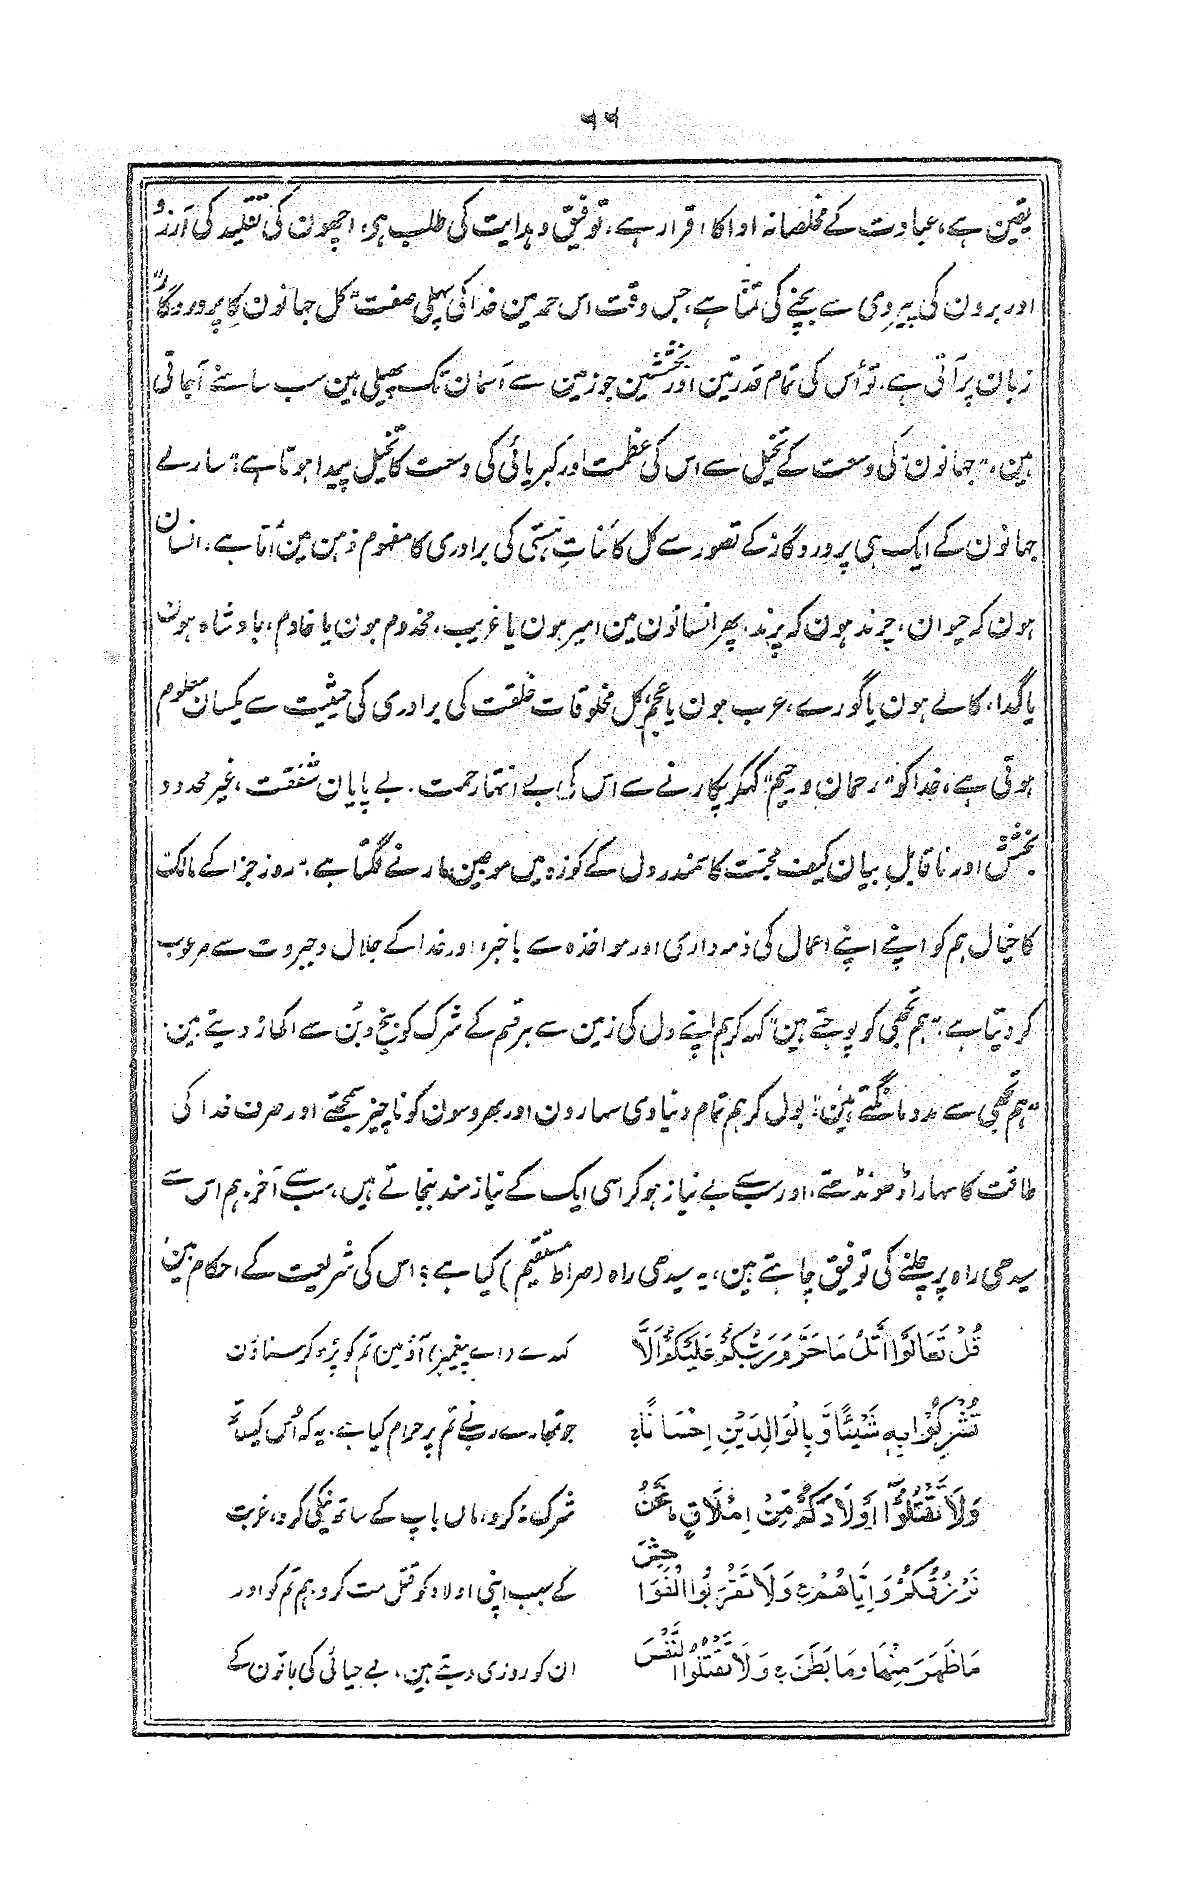 ۷۷
یقین ہے، عبادت کے مخلصانہ ادا کا اقرار ہے، توفیق و ہدایت کی طلب ہی، اچھون کی تقلید کی آرزو
اور برون کی پیروی سے بچنے کی تمنا ہے، جس وقت اس حمد مین خدا کی پہلی صفت "کل جہانون کا پروردگار"
زبان پر آتی ہے، تو اُس کی تمام قدرتین اور بخششین جو زمین سے آسمان تک پھیلی ہین سب سامنے آجاتی
ہین، "جہانون" کی وسعت کے تخیل سے اس کی عظمت اور کبریائی کی وسعت کا تخیل پیدا ہوتا ہے، "سارے
جہانون کے ایک ہی پروردگار" کے تصور سے کل کائناتِ ہستی کی برادری کا مفہوم ذہن مین آتا ہے، انسان
ہون کہ حیوان، چرند ہون کہ پرند، پھر انسانون مین امیر ہون یا غریب، مخدوم ہون یا خادم، بادشاہ ہون
یا گدا، کالے ہون یا گورے، عرب ہون یا عجم، کل مخلوقات خلقت کی برادری کی حیثیت سے یکسان معلوم
ہوتی ہے، خدا کو "رحمان و رحیم" کہکر پکارنے سے اس کی بے انتہا رحمت، بے پایان شفقت، غیر محدود
بخشش اور ناقابلِ بیان کیف محبت کا سمندر دل کے کوزہ میں موجین مارنے لگتا ہے، "روز جزا کے مالک"
کا خیال ہم کو اپنے اپنے اعمال کی ذمہ داری اور مواخذہ سے باخبر، اور خدا کے جلال و جبروت سے مرعوب
کر دیتا ہے، "ہم تجھی کو پوجتے ہین" کہہ کر ہم اپنے دل کی زمین سے ہر قسم کے شرک کو بیخ و بُن سے اکھاڑ دیتے ہین،
"ہم تجھی سے مدد مانگتے ہین"، بول کر ہم تمام دنیاوی سہارون اور بھروسون کو ناچیز سمجھتے اور صرف خدا کی
طاقت کا سہارا ڈھونڈھتے، اور سب سے بے نیاز ہو کر اسی ایک کے نیازمند بنجاتے ہیں، سب سے آخر ہم اس سے
سیدھی راہ پر چلنے کی توفیق چاہتے ہین، یہ سیدھی راہ (صراط مستقیم) کیا ہے؟ اس کی شریعت کے احکام ہین،
قُلْ تَعَالَوْا اَتْلُ مَا حَرَّمَ رَبُّكُمْ عَلَيْكُمْ اَلَّا
کہدے (اے پیغمبر) آؤ مین تم کو پڑھ کر سناؤن
تُشْرِكُوْا بِهٖ شَيْئًا وَّ بِالْوَالِدَيْنِ اِحْسَانًا ۚ
جو تمھارے رب نے تم پر حرام کیا ہے، یہ کہ اُس کیساتھ
وَلَا تَقْتُلُوْٓا اَوْلَادَكُمْ مِّنْ اِمْلَاقٍ ؕ نَحْنُ
شرک نہ کرو، ماں باپ کے ساتھ نیکی کرو، غربت
نَرْزُقُكُمْ وَ اِيَّاهُمْ ۚ وَلَا تَقْرَبُوا الْفَوَاحِشَ
کے سبب اپنی اولاد کو قتل مت کرو، ہم تم کو اور
مَا ظَهَرَ مِنْهَا وَ مَا بَطَنَ ۚ وَلَا تَقْتُلُوا النَّفْسَ
ان کو روزی دیتے ہین، بے حیائی کی باتون کے